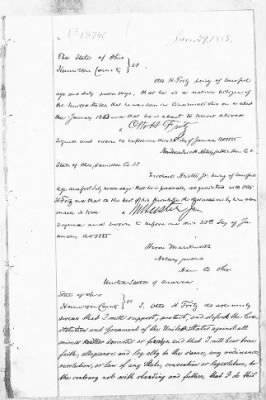 The State of Ohio
Hamilton County } SS.
Otto H. Fritz being of lawful
age and duly sworn says, that he is a native citizen of
the United States, that he was born in Cincinnati Ohio on or about
January 1863 and that he is about to travel abroad
Otto H Fritz
Signed and sworn to before me this day of January 1885
State of Ohio, Hamilton Co. SS
Michael Jr. being of lawful
age and duly sworn says that he is personally acquainted with Otto
H Fritz and that to the best of his knowledge the above statement by him above
made, is true
Signed and sworn to before me this 28th day of Jan
uary AD 1885
Notary public
Ham Co Ohio
United States of America
State of Ohio
Hamilton County } SS I, Otto H Fritz do solemnly
swear that I will support, protect, and defend the Con
stitution and Government of the United States against all
enemies, whether domestic or foreign and that I will bear true
faith, allegiance and loyalty to the same, any ordinance,
resolution, or law of any State, convention or legislature, to
the contrary notwithstanding and further, that I do this